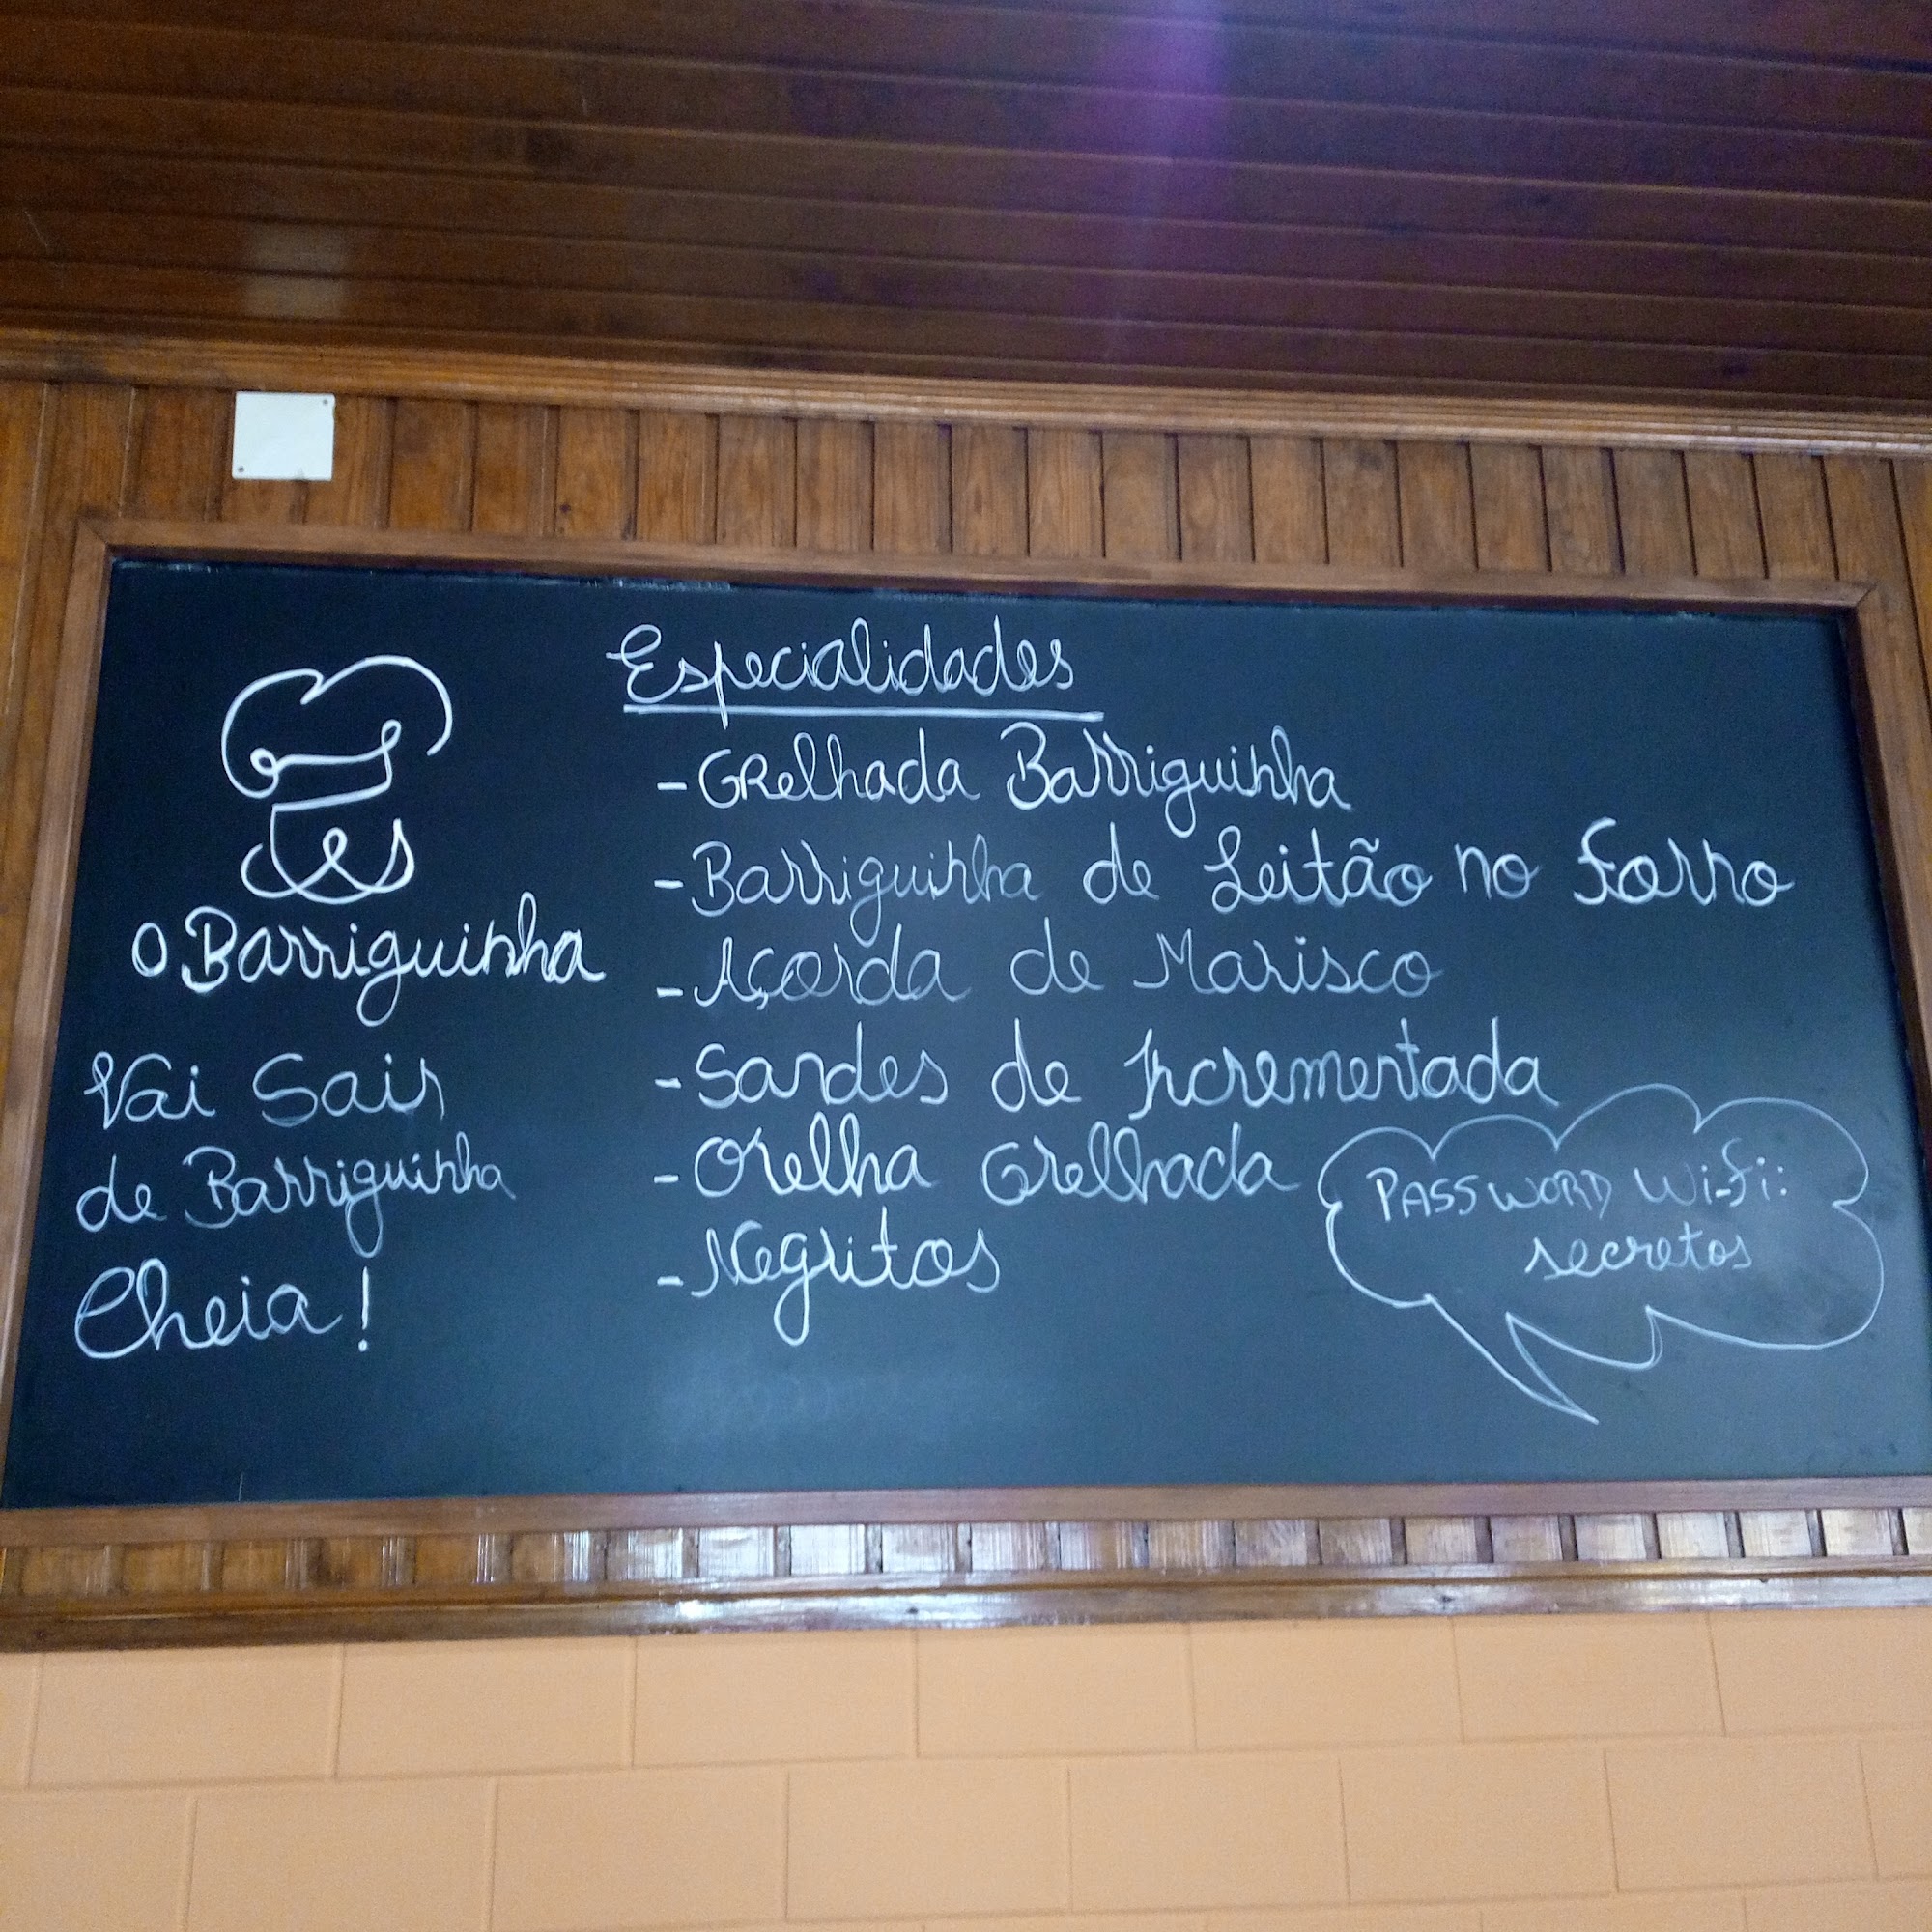 O Barriguinha
Vai Sair
de Barriguinha
Cheia!
Especialidades
- Grelhada Barriguinha
- Barriguinha de Leitão no Forno
- Açorda de Marisco
- Sandes de Incrementada
- Orelha Grelhada
- Negritos
PASSWORD Wi-Fi:
secretos